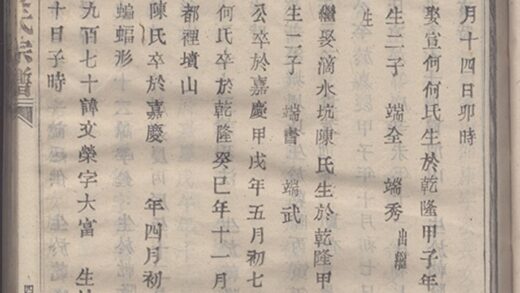 月十四日卯時
娶宣何何氏生於乾隆甲子年
生二子 端全 端秀出繼
生
繼娶滴水坑陳氏生於乾隆甲
生二子 端書 端武
公卒於嘉慶甲戌年五月初七
何氏卒於乾隆癸巳年十一月
都裡墳山
陳氏卒於嘉慶 年四月初
蝙蝠形
九百七十諱文榮字大富 生於
十日子時
氏宗譜
四